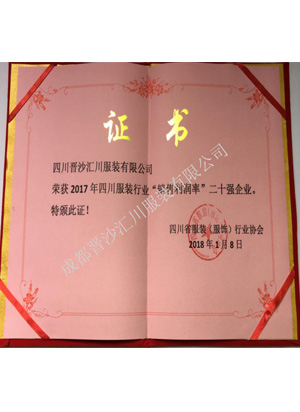 证书
四川晋沙汇川服装有限公司
荣获2017年四川服装行业“销售利润率”二十强企业。
特颁此证！
四川省服装（服饰）行业协会
2018年1月8日
成都晋沙汇川服装有限公司